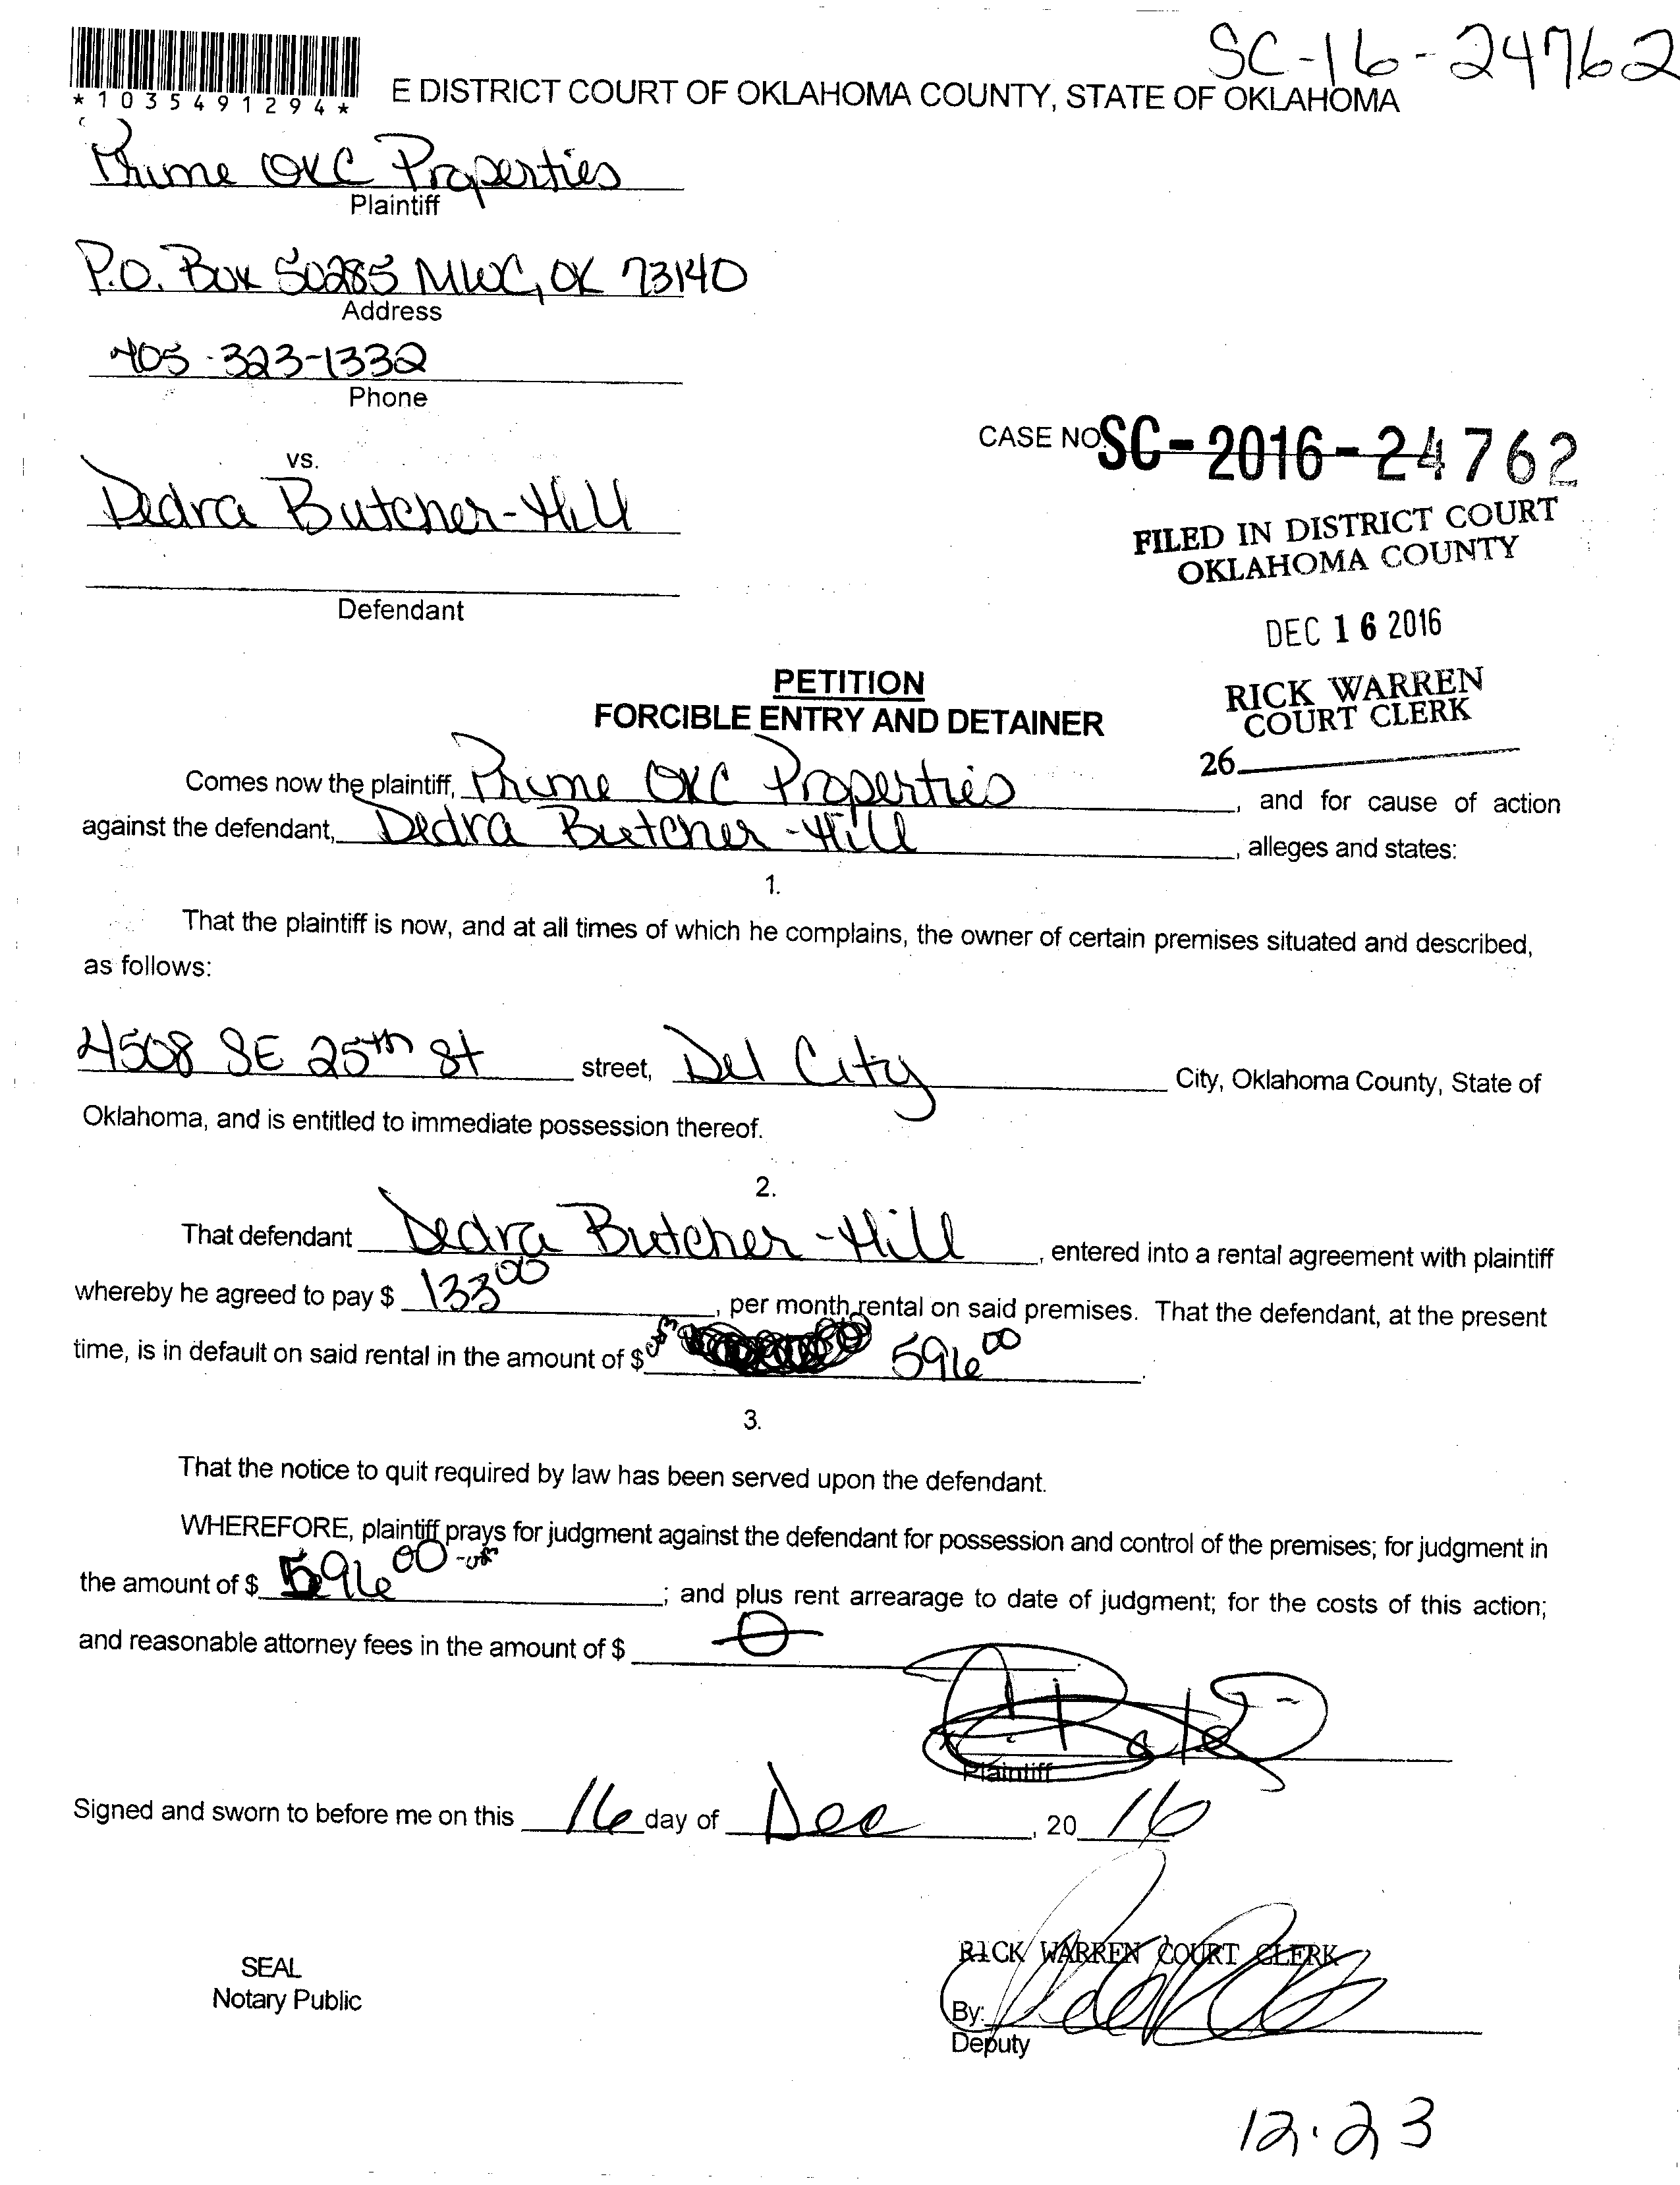 SC-16-24762
*1035491294*
E DISTRICT COURT OF OKLAHOMA COUNTY, STATE OF OKLAHOMA
Prime OKC Properties
Plaintiff
P.O. Box 50285 MWC, OK 73140
Address
405-323-1332
Phone
CASE NO. SC-2016-24762
vs.
Dedra Butcher-Hill
FILED IN DISTRICT COURT
OKLAHOMA COUNTY
Defendant
DEC 16 2016
PETITION
FORCIBLE ENTRY AND DETAINER
RICK WARREN
COURT CLERK
26
Comes now the plaintiff, Prime OKC Properties, and for cause of action
against the defendant, Dedra Butcher-Hill, alleges and states:
1.
That the plaintiff is now, and at all times of which he complains, the owner of certain premises situated and described,
as follows:
4508 SE 25th St street, Del City City, Oklahoma County, State of
Oklahoma, and is entitled to immediate possession thereof.
2.
That defendant Dedra Butcher-Hill, entered into a rental agreement with plaintiff
whereby he agreed to pay $ 133 00, per month rental on said premises. That the defendant, at the present
time, is in default on said rental in the amount of $ 596 00.
3.
That the notice to quit required by law has been served upon the defendant.
WHEREFORE, plaintiff prays for judgment against the defendant for possession and control of the premises; for judgment in
the amount of $ 596 00; and plus rent arrearage to date of judgment; for the costs of this action;
and reasonable attorney fees in the amount of $ 0
Plaintiff
Signed and sworn to before me on this 16 day of Dec, 20 16
RICK WARREN COURT CLERK
SEAL
Notary Public
By:
Deputy
12.23